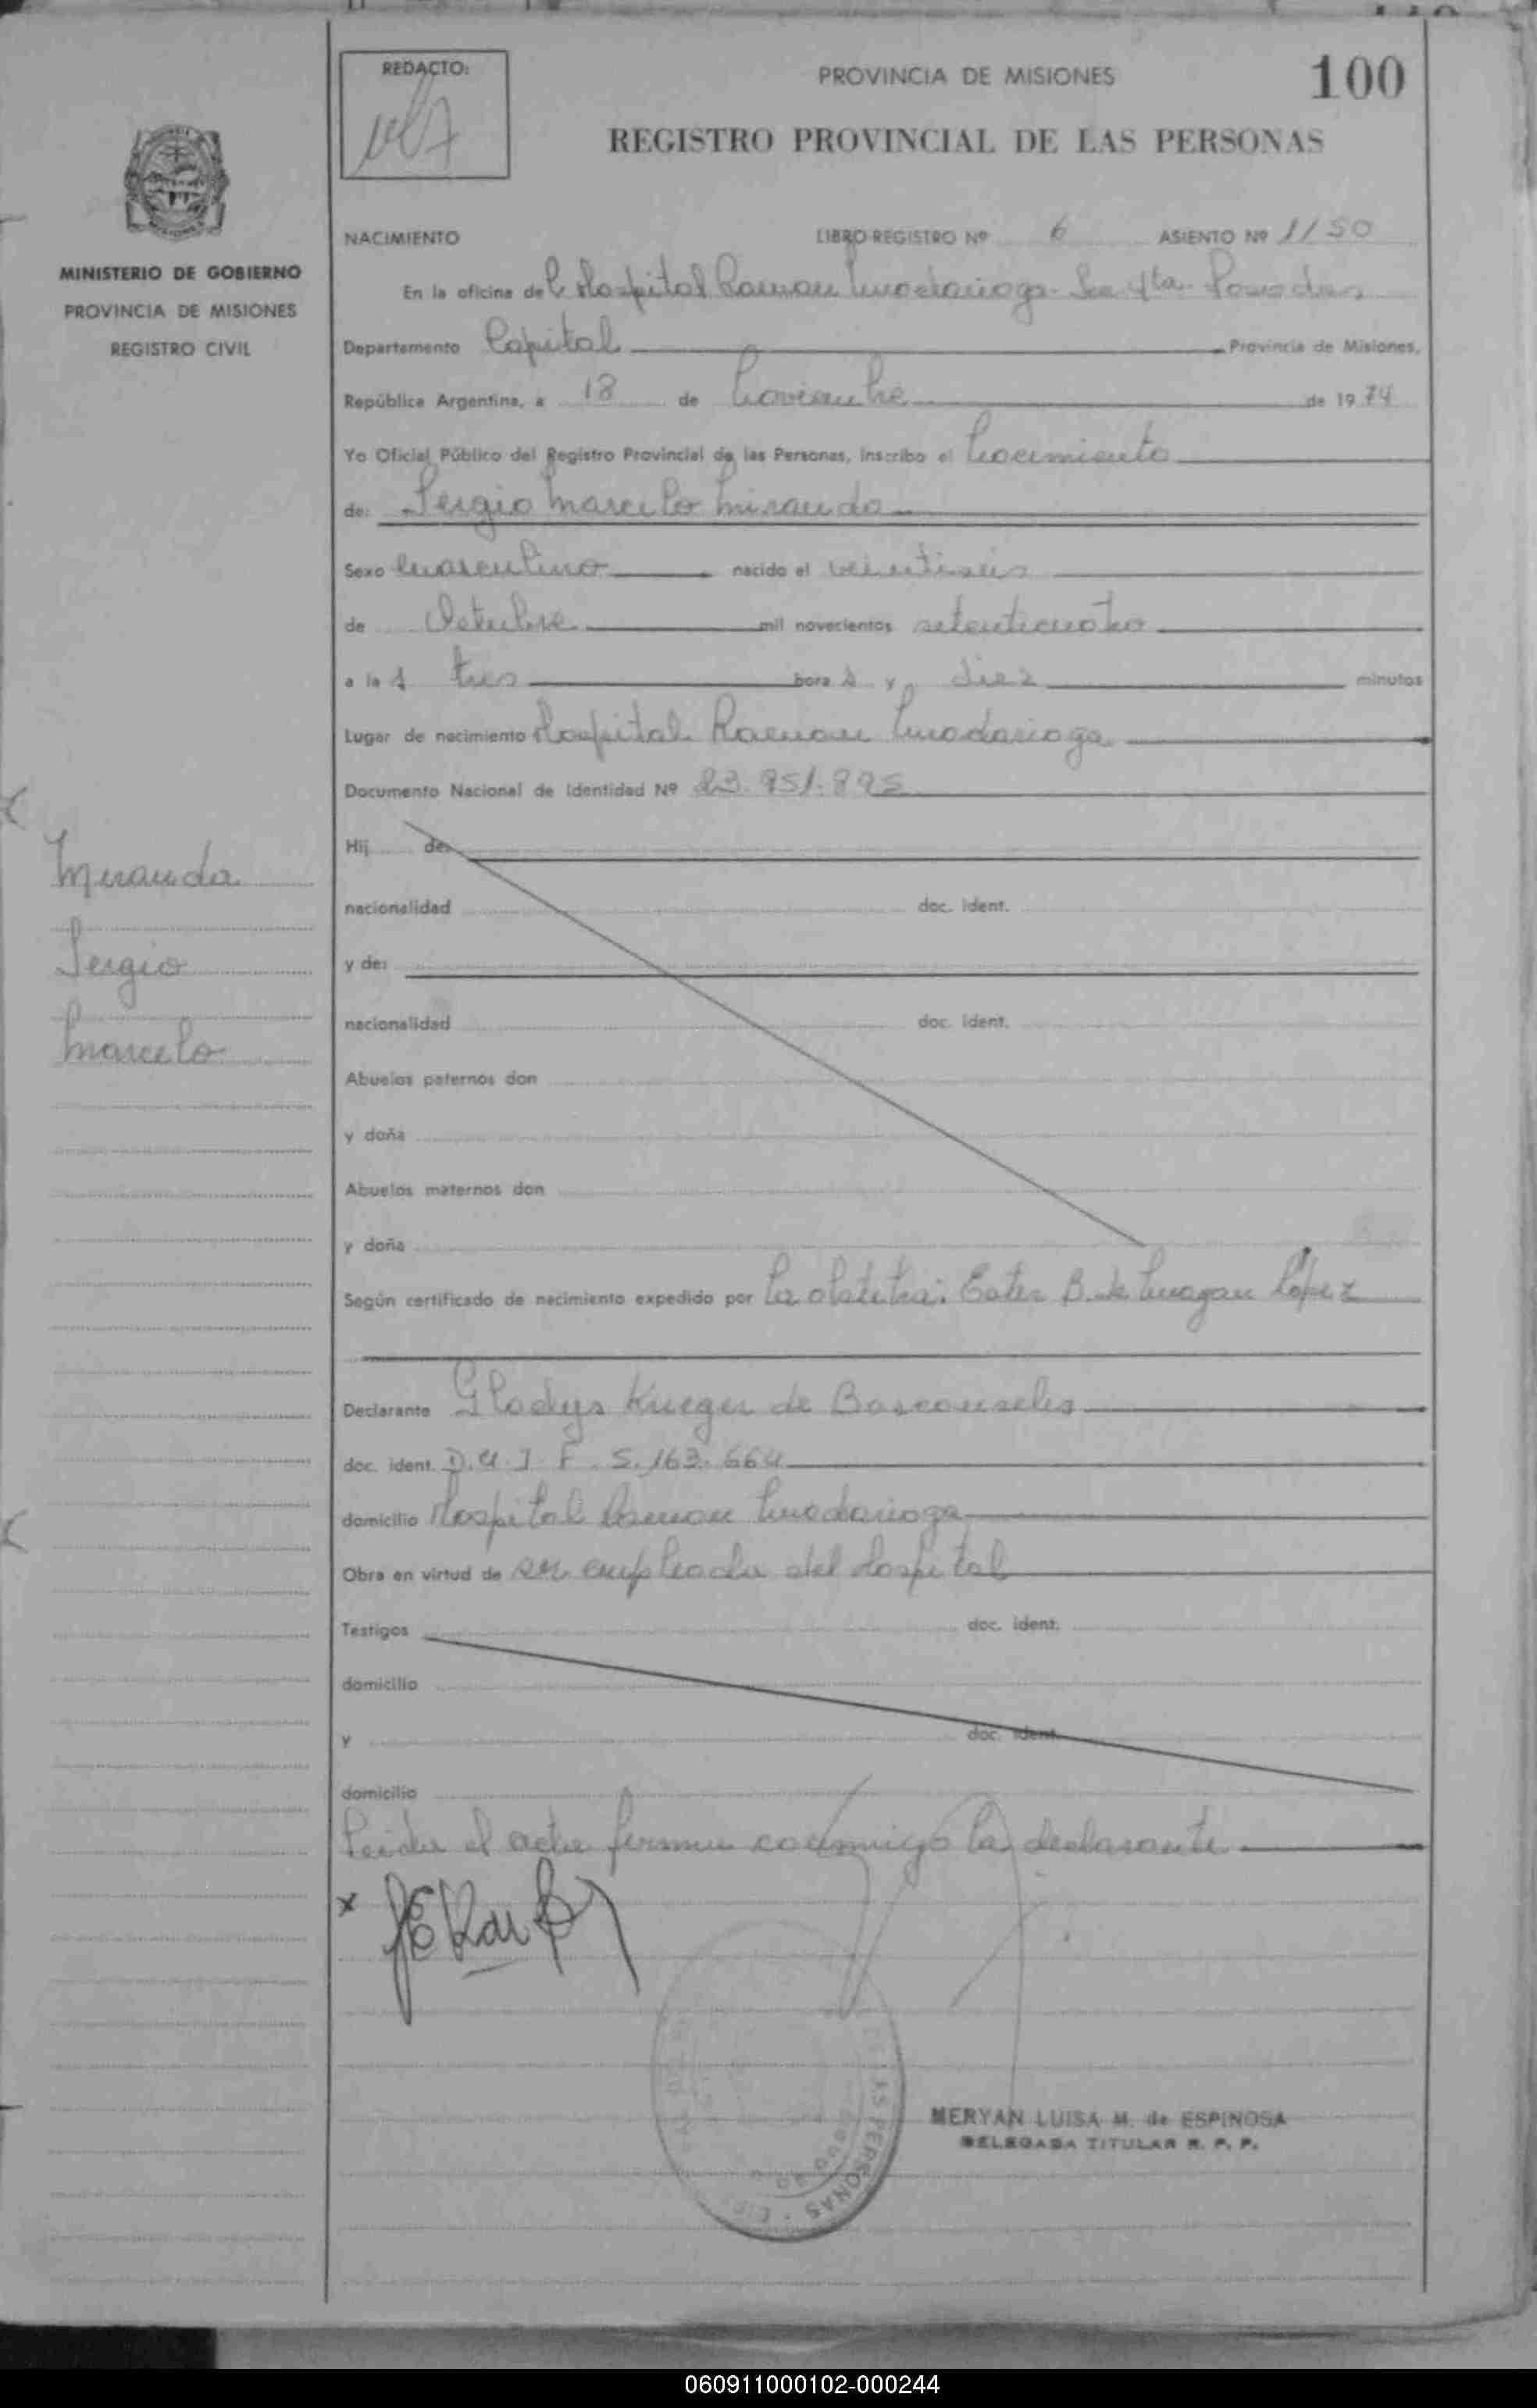 REDACTO:
PROVINCIA DE MISIONES
100
REGISTRO PROVINCIAL DE LAS PERSONAS
MINISTERIO DE GOBIERNO
PROVINCIA DE MISIONES
REGISTRO CIVIL
NACIMIENTO LIBRO-REGISTRO Nº 6 ASIENTO Nº 1150
En la oficina del Hospital Ramon Madariaga Sec 4ta Posadas
Departamento Capital Provincia de Misiones,
República Argentina, a 18 de Noviembre de 1974
Yo Oficial Público del Registro Provincial de las Personas, Inscribo el Nacimiento
de: Sergio Marcelo Miranda
Sexo Masculino nacido el veintiseis
de Octubre mil novecientos setenticuatro
a las tres horas y diez minutos
Lugar de nacimiento Hospital Ramon Madariaga
Documento Nacional de Identidad Nº 23.951.895
Miranda
Sergio
Marcelo
Hij de:
nacionalidad doc. ident.
y de:
nacionalidad doc. ident.
Abuelos paternos don
y doña
Abuelos maternos don
y doña
Según certificado de nacimiento expedido por La obstetra: Ester B. de Lopez
Declarante Gladys Krieger de Basconselos
doc. ident. D.N.I F 5.163.664
domicilio Hospital Ramon Madariaga
Obra en virtud de ser empleada del Hospital
Testigos doc. ident.
domicilio
y doc. ident.
domicilio
Leida el acta firman conmigo la declarante
x
LAS PERSONAS
MERYAN LUISA M. de ESPINOSA
DELEGADA TITULAR R. P. P.
060911000102-000244